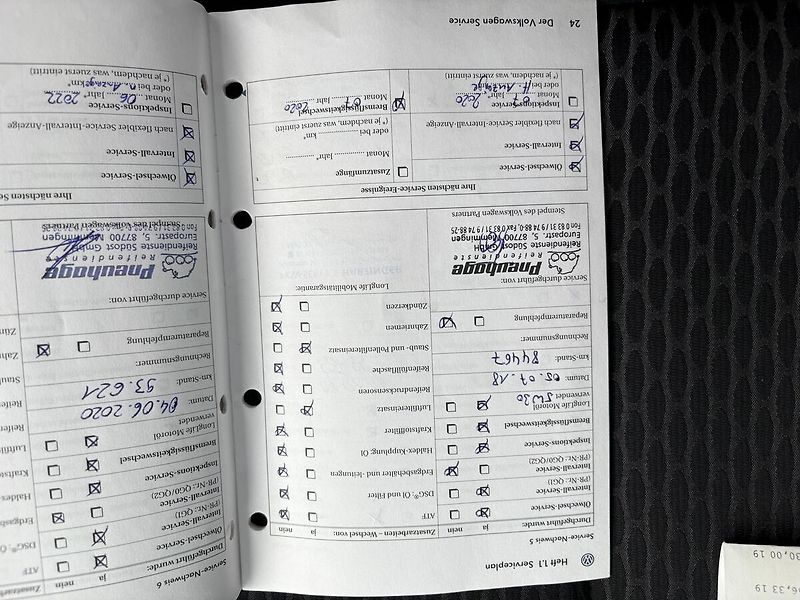 Heft 1.1 Serviceplan
Service-Nachweis 5
Durchgeführt wurde:
ja
nein
Ölwechsel-Service
Intervall-Service
(PR-Nr.: QG1)
Intervall-Service
(PR-Nr.: QG0/QG2)
Inspektions-Service
Bremsflüssigkeitswechsel
LongLife Motoröl
verwendet 5W30
Datum: 05.07.18
km-Stand: 84467
Rechnungsnummer:
Reparaturempfehlung
Service durchgeführt von:
Pneuhage
Reifendienste
Reifendienste Südost GmbH
Europastr. 5, 87700 Memmingen
Fon 0 83 31 / 9 74 88-0, Fax 0 83 31 / 9 74 88-25
Stempel des Volkswagen Partners
Zusatzarbeiten – Wechsel von:
ja
nein
ATF
DSG®: Öl und Filter
Erdgasbehälter und -leitungen
Haldex-Kupplung: Öl
Kraftstofffilter
Luftfiltereinsatz
Reifendrucksensoren
Reifenfüllflasche
Staub- und Pollenfiltereinsatz
Zahnriemen
Zündkerzen
LongLife Mobilitätsgarantie:
Ihre nächsten Service-Ereignisse
Ölwechsel-Service
Intervall-Service
nach flexibler Service-Intervall-Anzeige
Inspektions-Service
Monat 07 Jahr* 2020
oder bei n. Anzeige km*
(* je nachdem, was zuerst eintritt)
Zusatzumfänge
Monat Jahr*
oder bei km*
(* je nachdem, was zuerst eintritt)
Bremsflüssigkeitswechsel
Monat 07 Jahr 2020
24 Der Volkswagen Service
Service-Nachweis 6
Durchgeführt wurde:
ja
nein
Ölwechsel-Service
Intervall-Service
(PR-Nr.: QG1)
Intervall-Service
(PR-Nr.: QG0/QG2)
Inspektions-Service
Bremsflüssigkeitswechsel
LongLife Motoröl
verwendet
Datum: 04.06.2020
km-Stand: 93.621
Rechnungsnummer:
Reparaturempfehlung
Service durchgeführt von:
Pneuhage
Reifendienste
Reifendienste Südost GmbH
Europastr. 5, 87700 Memmingen
Stempel des Volkswagen Partners
Zusatzarbeiten
ATF
DSG®: Öl
Erdgasb
Haldex
Kraftsto
Luftfilt
Reifen
Reife
Staub
Zahn
Zünd
Ihre nächsten Se
Ölwechsel-Service
Intervall-Service
nach flexibler Service-Intervall-Anzeige
Inspektions-Service
Monat 06 Jahr* 2022
oder bei n. Anzeige km*
(* je nachdem, was zuerst eintritt)
30,00 19
6,33 19